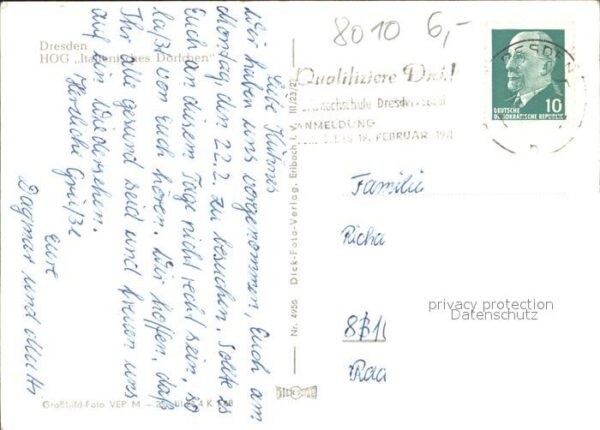 8010 6,-
Dresden
HOG „Italienisches Dörfchen"
Liebe Kühnes
Wir haben uns vorgenommen, Euch am
Montag, den 22.2. zu besuchen. Sollte es
Euch an diesem Tage nicht recht sein, so
laßt von Euch hören. Wir hoffen, daß
Ihr alle gesund seid und freuen uns
auf ein Wiedersehen.
Herzliche Grüße
Eure
Dagmar und
Großbild-Foto VEP M
Nr. 4956 Dick-Foto-Verlag, Erlbach i. V. III/23/27
Qualifiziere Dich!
Dresden
ANMELDUNG
19. FEBRUAR
DRESDEN
10
DEUTSCHE
DEMOKRATISCHE REPUBLIK
Familie
Richa
privacy protection
Datenschutz
Raa